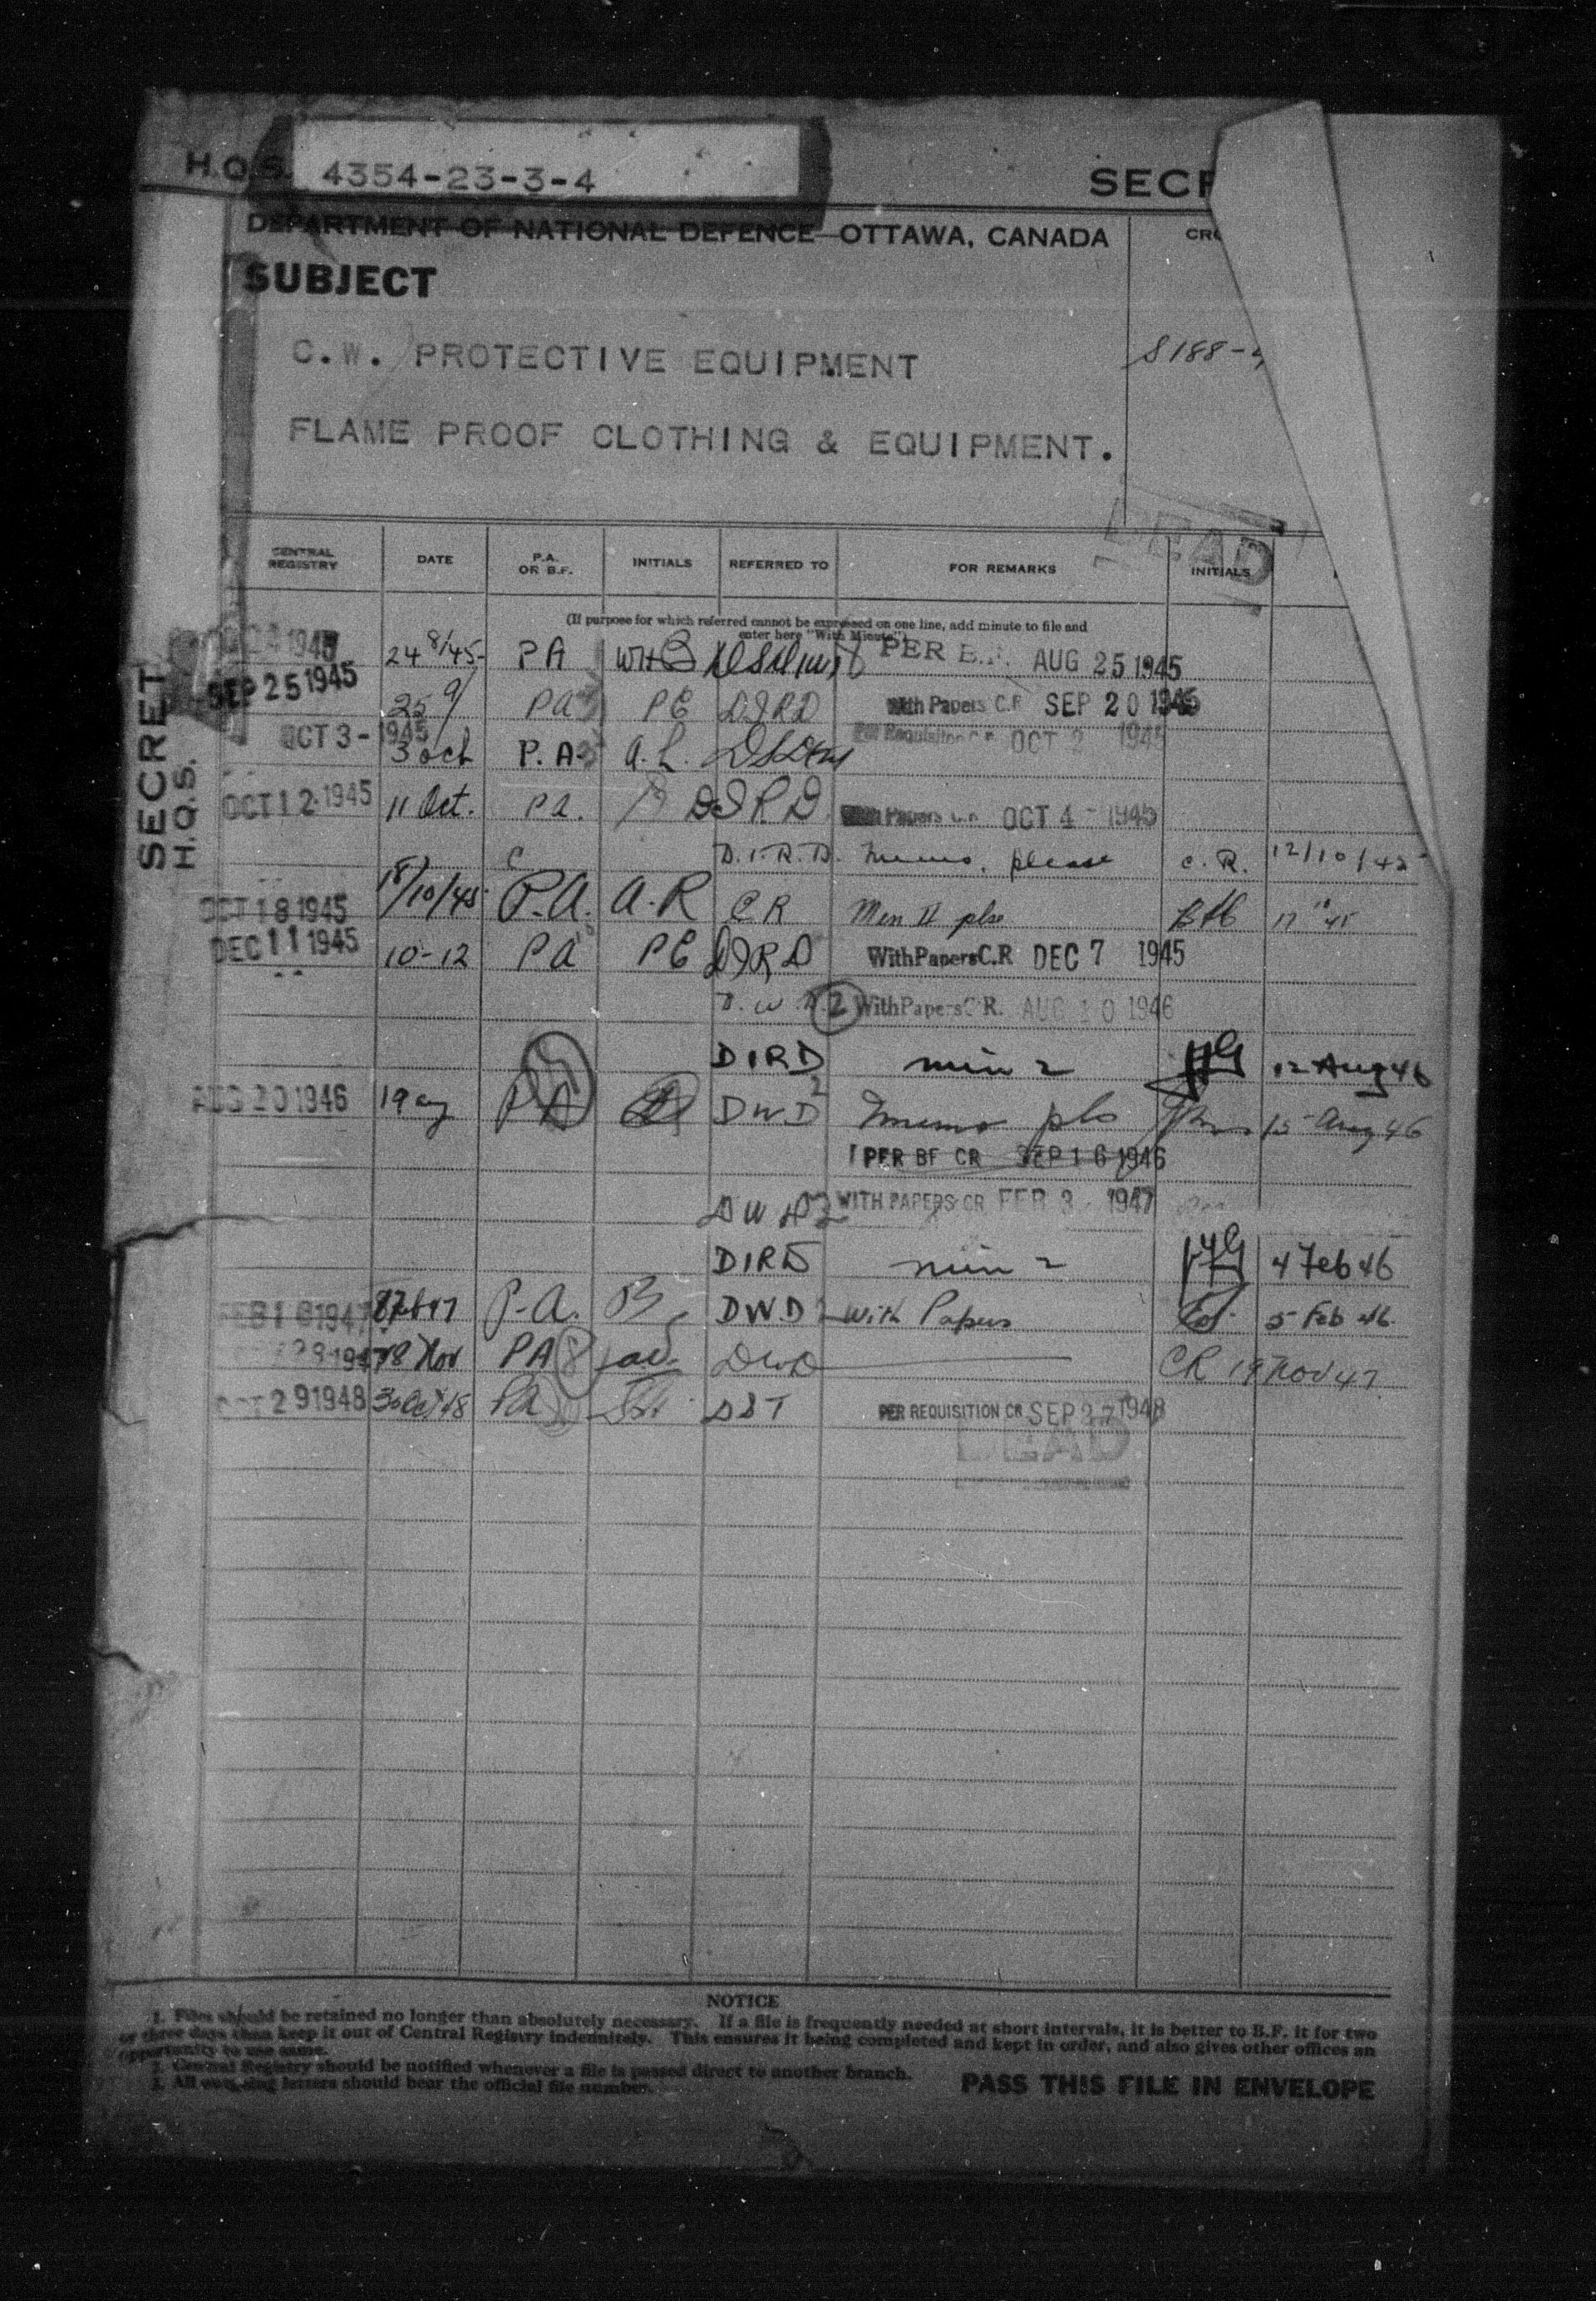 H.Q.S. 4354-23-3-4
DEPARTMENT OF NATIONAL DEFENCE—OTTAWA, CANADA
SUBJECT
C.W. PROTECTIVE EQUIPMENT
S188-
FLAME PROOF CLOTHING & EQUIPMENT.
DEAD
SECRET
H.Q.S.
CENTRAL REGISTRY DATE P.A. OR B.F. INITIALS REFERRED TO FOR REMARKS INITIALS
(If purpose for which referred cannot be expressed on one line, add minute to file and
enter here "With Minute")
1945 24 8/45 PA WHB PER B.F. AUG 25 1945
SEP 25 1945 25 9/ PA PE DIRD With Papers C.R SEP 20 1945
OCT 3 - 1945 3 Oct P.A. a.L. For Requisition C.R. OCT 2 1945
OCT 12 1945 11 Oct. Pa. DIRD With Papers C.R OCT 4 - 1945
D.I.R.D. Memo, please C.R. 12/10/45
OCT 18 1945 18/10/45 P.A. A.R CR Min II plse 17 10 45
DEC 11 1945 10-12 PA PE DIRD With Papers C.R DEC 7 1945
D.W.D. 2 With Papers C.R. AUG 10 1946
DIRD min 2 12 Aug 46
AUG 20 1946 19 aug PA DWD 2 memo pls 15 Aug 46
PER BF CR SEP 16 1946
DWD 2 WITH PAPERS CR FEB 3 1947
DIRD min 2 4 Feb 46
FEB 18 1947 P.A. B DWD 2 With Papers 5 Feb 46
28 1947 18 Nov PA DWD CR 19 Nov 47
OCT 29 1948 30 Oct 48 PA DST PER REQUISITION CR SEP 27 1948
DEAD
NOTICE
1. Files should be retained no longer than absolutely necessary. If a file is frequently needed at short intervals, it is better to B.F. it for two
or three days than keep it out of Central Registry indefinitely. This ensures it being completed and kept in order, and also gives other offices an
opportunity to use same.
2. Central Registry should be notified whenever a file is passed direct to another branch.
3. All outgoing letters should bear the official file number.
PASS THIS FILE IN ENVELOPE